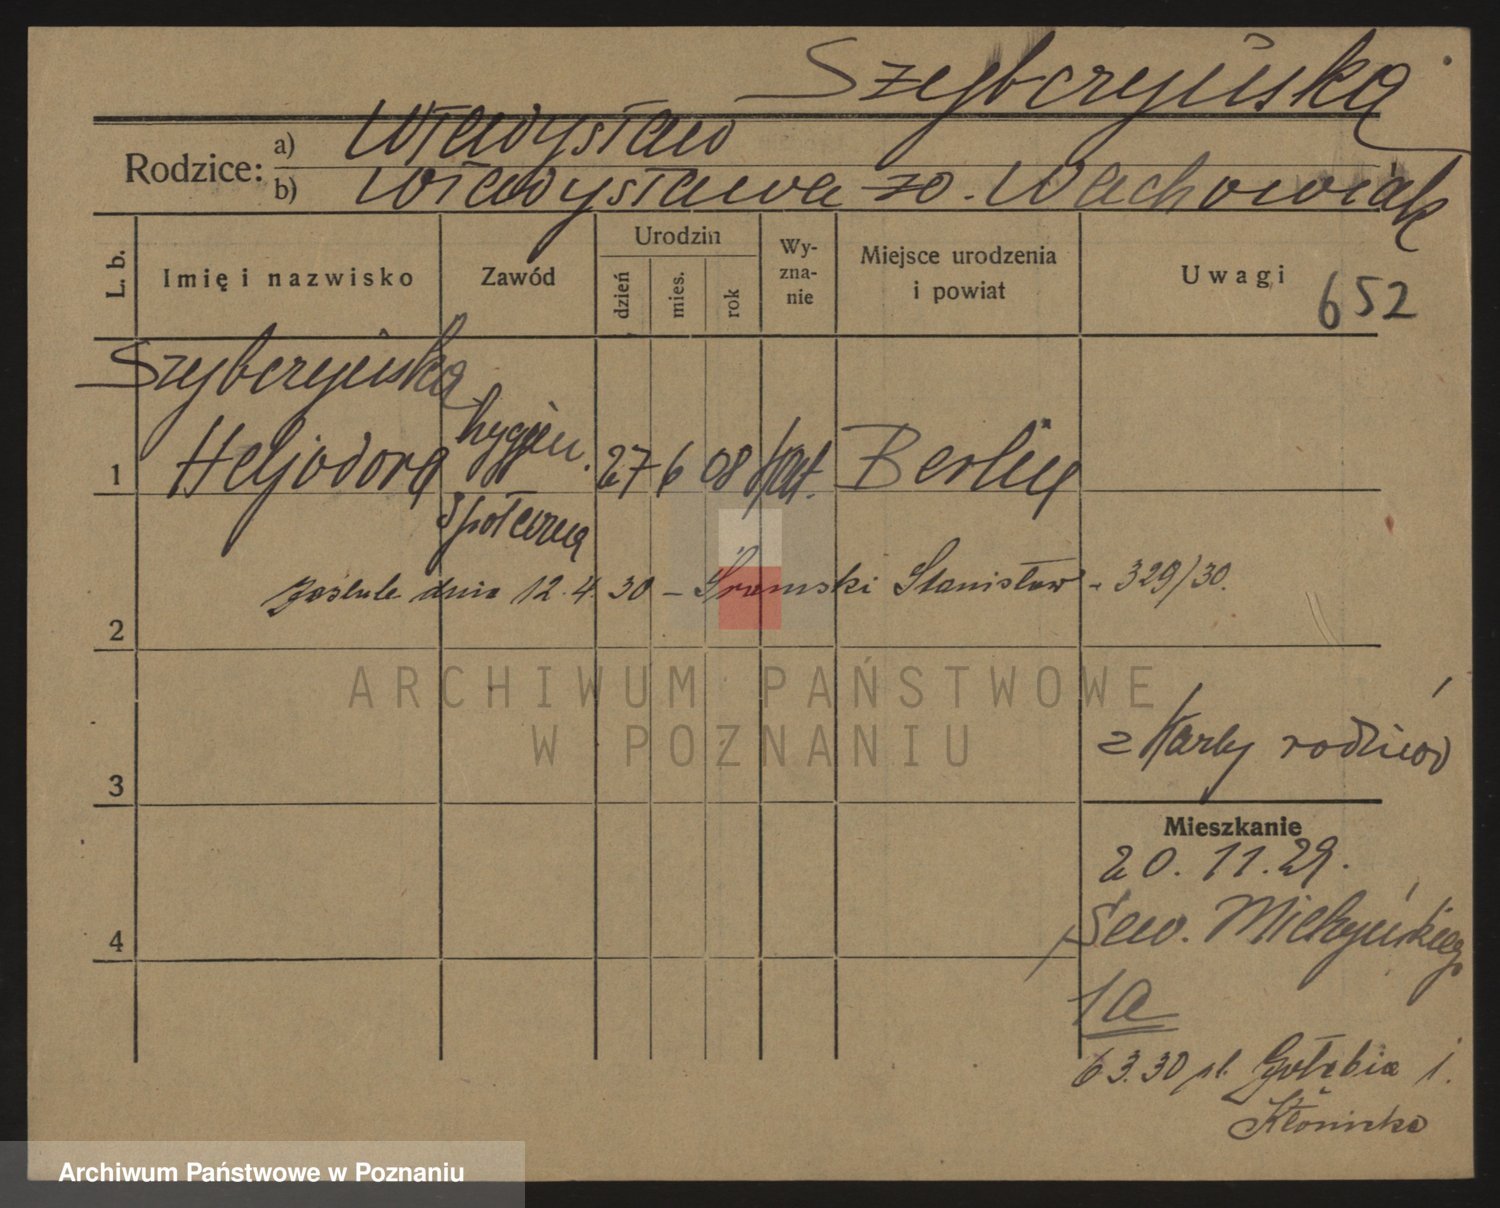 Szybczyńska
Rodzice: a) Władysław
b) Władysława zo. Wachowiak
L. b. Imię i nazwisko Zawód Urodzin dzień mies. rok Wy-zna-nie Miejsce urodzenia i powiat Uwagi
652
Szybczyńska
1 Heljodora hygjen. 27 6 08 kat. Berlin
społeczna
zaślub. dnia 12.4.30 – Śramski Stanisław - 329/30.
2
ARCHIWUM PAŃSTWOWE
W POZNANIU
z Karty rodziców
3
Mieszkanie
20.11.29.
Sew. Mielżyńskiego
4
1a
6 3.30 pl. Gołębia 1.
Kłonicka
Archiwum Państwowe w Poznaniu